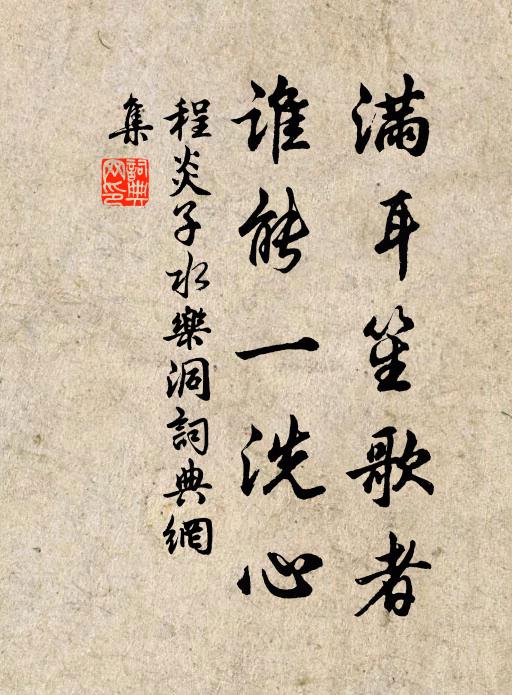 滿耳笙歌者
誰能一洗心
程炎子水樂洞詞典網
集
詞典網印